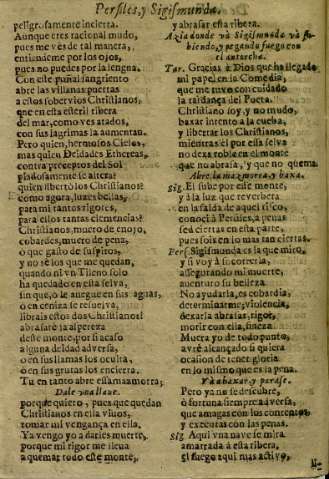 Persiles, y Sigismunda.
peligrosamente incierta.
Aunque eres racional mudo,
pues me ves de tal manera,
entiendeme por los ojos,
pues no puedes por la lengua.
Con este puñal sangriento
abre las villanas puertas
a estos sobervios Christianos,
que en esta esteril ribera
del mar, como ves atados,
con sus lagrimas la aumentan.
Pero quien, hermosos Cielos,
mas quien Deidades Ethereas,
contra preceptos del Sol
piadosamente se altera?
quien libertò los Christianos?
como agora, luzes bellas,
para mi tantos rigores,
para ellos tantas clemencias?
Christianos, muero de enojo,
cobardes, muero de pena,
ò que gasto de suspiros,
y no sè los que me quedan,
quando ni vn solo
ha quedado en esta selva,
sin que, ò le anegue en sus aguas,
ò en ceniza le resuelva,
librais estos dos Christianos?
abrasarè la aspereza
deste monte, por si acaso
alguna deidad adversa,
ò en sus llamas los oculta,
ò en sus grutas los encierra.
Tu en tanto abre essa mazmorra;
Dale vna llave.
porque quiero, pues que quedan
Christianos en ella vivos,
tomar mi vengança en ella.
Ya vengo yo a darles muerte,
porque mi rigor me lleva
a quemar todo este monte,
y abrasar esta ribera.
Azia donde và Sigismunda và subiendo, y pegando fuego con
el antorcha.
Tar. Gracias à Dios que ha llegado
mi papel en la Comedia,
que me tuvo con cuidado
la tardança del Poeta.
Christiano soy, y no mudo,
baxar intento a la cueva,
y libertar los Christianos,
mientras èl por essa selva
no dexa roble en el monte
que no abrasa, y que no quema.
Abre la mazmorra, y baxa.
Sig. El sube por este monte,
y à la luz que reverbera
en la falda de aquel risco,
conocì à Persiles, apenas
sed ciertas en esta parte,
pues sois en lo mas tan ciertas.
Per. Sigismunda es la que miro,
y si voy à socorrerla,
assegurando mi muerte,
aventuro su belleza.
No ayudarla, es cobardia,
determinarme, violencia,
dexarla abrasar, rigor,
morir con ella, fineza.
Muera yo de todo punto,
avrè alcançado si quiera
ocasion de tener gloria
en lo mismo que es la pena.
Và à baxar, y parase.
Pero ya no se descubre,
ò fortuna siempre adversa,
que amagas con los contentos,
y executas con las penas.
Sig. Aqui vna nave se mira
amarrada à esta ribera,
el fuego aqui mas activo,